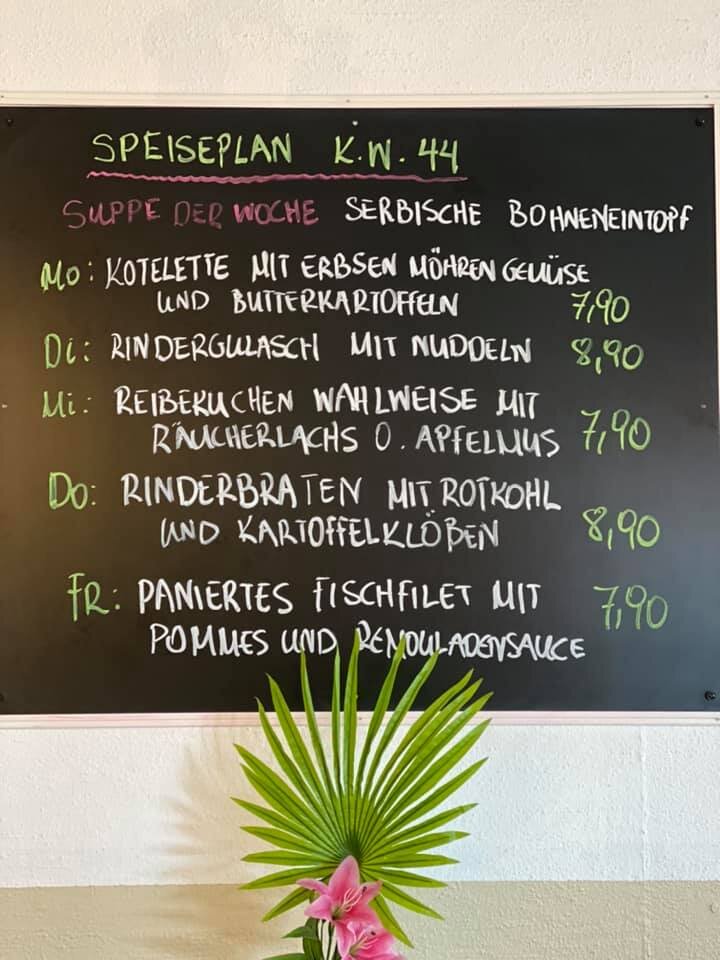 SPEISEPLAN K.W. 44
SUPPE DER WOCHE SERBISCHE BOHNENEINTOPF
Mo: KOTELETTE MIT ERBSEN MÖHREN GEMÜSE
UND BUTTERKARTOFFELN 7,90
Di: RINDERGULASCH MIT NUDDELN 8,90
Mi: REIBEKUCHEN WAHLWEISE MIT
RÄUCHERLACHS O. APFELMUS 7,90
Do: RINDERBRATEN MIT ROTKOHL
UND KARTOFFELKLÖßEN 8,90
FR: PANIERTES FISCHFILET MIT 7,90
POMMES UND REMOULADENSAUCE